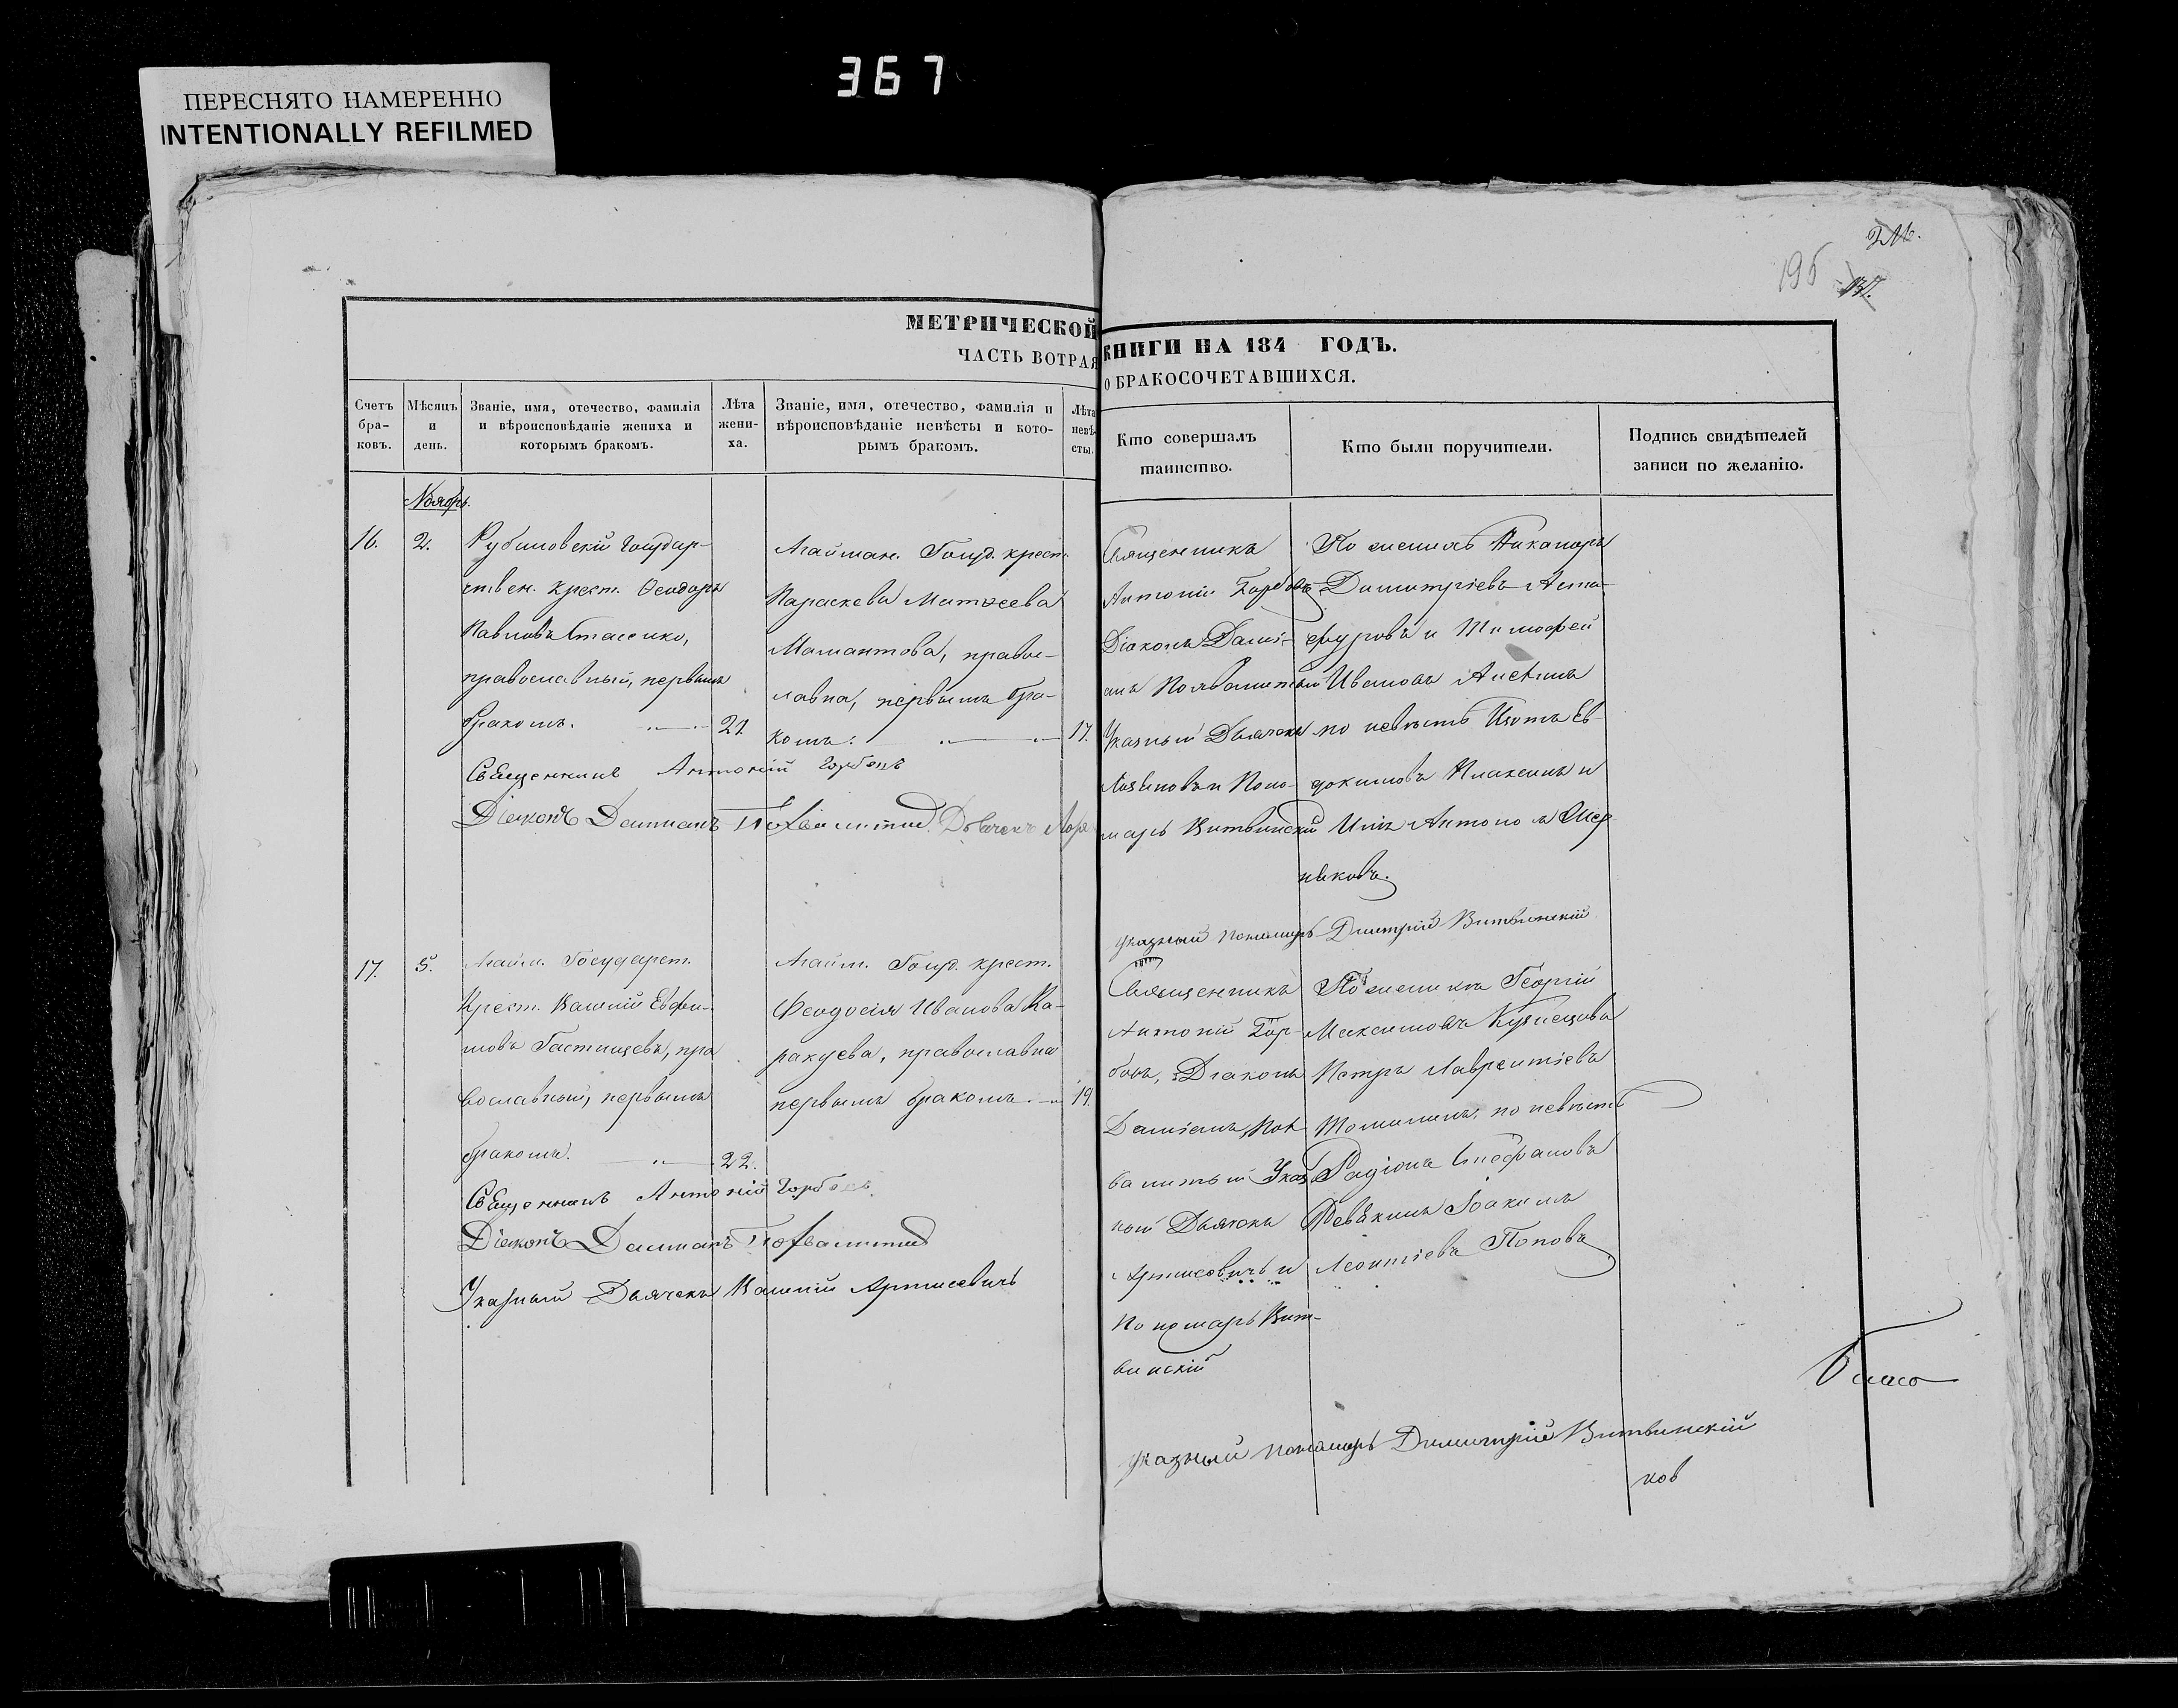 367
ПЕРЕСНЯТО НАМЕРЕННО
INTENTIONALLY REFILMED
195
МЕТРИЧЕСКОЙ КНИГИ НА 184 ГОДЪ.
ЧАСТЬ ВОТРАЯ О БРАКОСОЧЕТАВШИХСЯ.
Счетъ
бра-
ковъ.
Мѣсяцъ
и
день.
Званіе, имя, отечество, фамилія
и вѣроисповѣданіе жениха и
которымъ бракомъ.
Лѣта
жени-
ха.
Званіе, имя, отечество, фамилія и
вѣроисповѣданіе невѣсты и кото-
рымъ бракомъ.
Лѣта
невѣ-
сты.
Кто совершалъ
таинство.
Кто были поручители.
Подпись свидѣтелей
записи по желанію.
Ноябрь.
16.
2.
Рубановскій Государ-
ствен. крест. Ѳеодоръ
Павловъ Стасенко,
православный, первымъ
бракомъ.
21.
Агайман. Госуд. крест.
Параскева Матѳеева
Мамантова, правос-
лавна, первымъ бра-
комъ.
17.
Священникъ
Антоній Горбовъ
Діаконъ Дамі-
анъ Похвалитый
Указный Дьячекъ
и Поно-
марь Витвинскій
По женихѣ Никаноръ
Димитріевъ
и Тимофей
Ивановъ
по невѣстѣ Изотъ Ев-
докимовъ и
Антонов
никовъ.
Священникъ Антоній Горбовъ
Діаконъ Даміанъ Похвалитый Дьячекъ
указный пономарь Димитрій Витвинскій
17.
5.
Агайм. Государст.
Крест. Василій Евфи-
мовъ Гостищевъ, пра
вославный, первымъ
бракомъ.
22.
Агайм. Госуд. крест.
Феодосія Иванова Ка-
ракуева, православна
первымъ бракомъ.
19.
Священникъ
Антоній Гор-
бовъ, Діаконъ
Даміанъ Пох-
валитый Указ
ный Дьячекъ
Артисевичъ и
Пономарь Вит-
винскій
По женихѣ Георгій
Максимовъ Кузнецовъ
Петръ Лаврентіевъ
Томилинъ; по невѣстѣ
Радіонъ Стефановъ
Ревякинъ Іоакимъ
Леонтіевъ Поповъ
Священникъ Антоній Горбовъ
Діаконъ Даміанъ Похвалитый
Указный Дьячекъ Василій Артисевичъ
указный пономарь Димитрій Витвинскій
ков